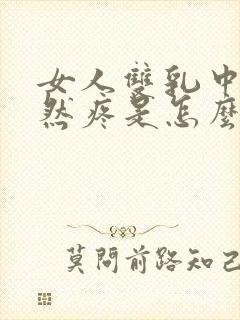 女人雙乳中
然疼是怎麼
莫問前路知己